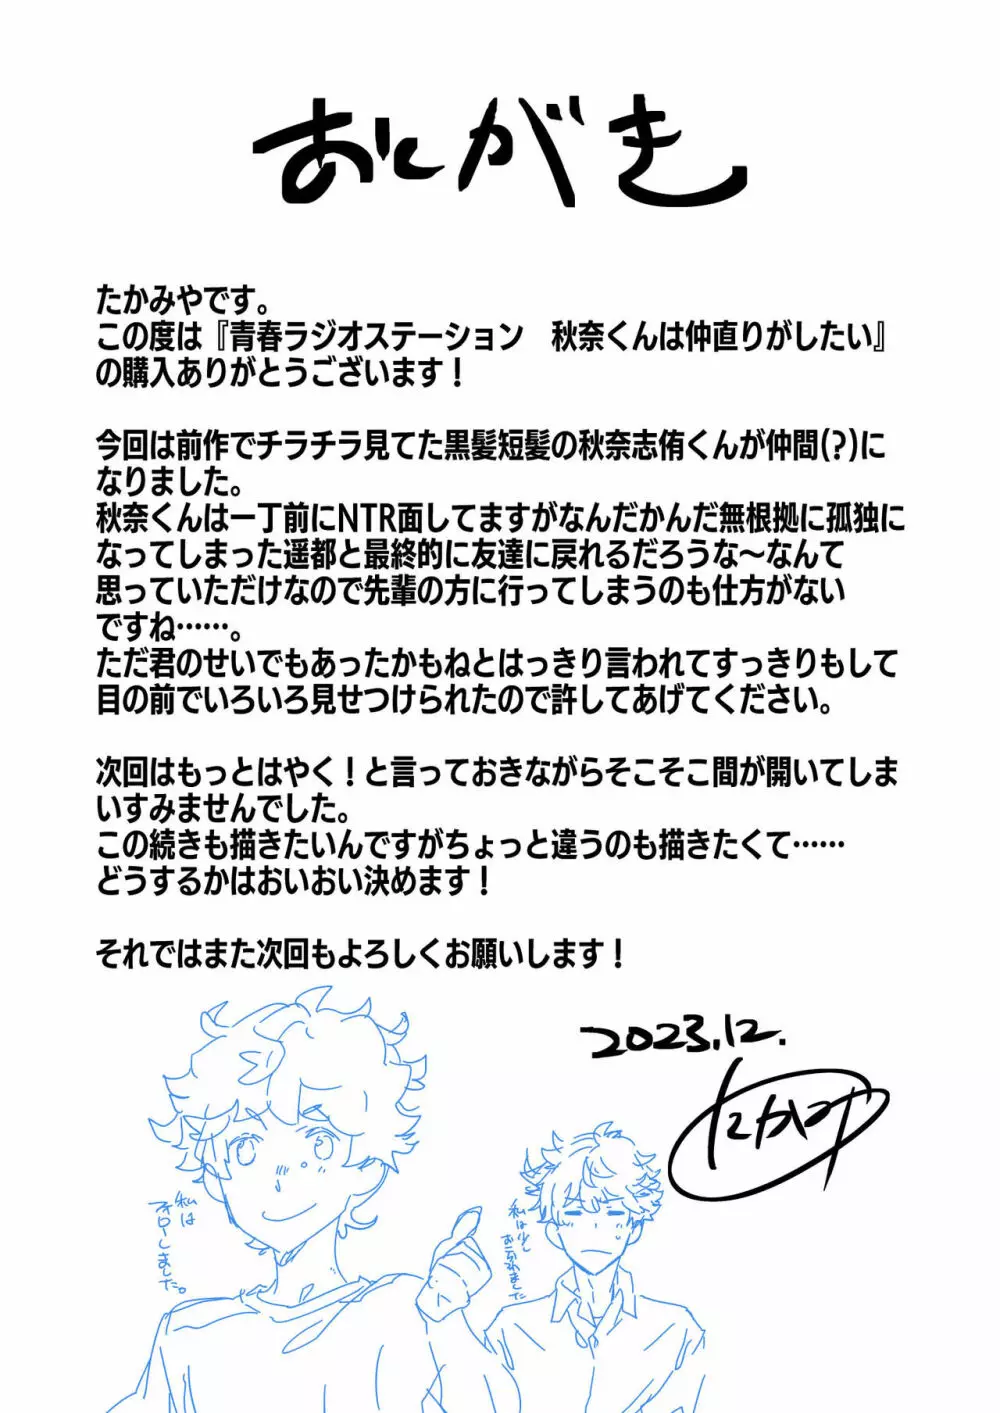 あとがき
たかみやです。
この度は『青春ラジオステーション　秋奈くんは仲直りがしたい』
の購入ありがとうございます！
今回は前作でチラチラ見てた黒髪短髪の秋奈志侑くんが仲間(?)に
なりました。
秋奈くんは一丁前にNTR面してますがなんだかんだ無根拠に孤独に
なってしまった遥都と最終的に友達に戻れるだろうな〜なんて
思っていただけなので先輩の方に行ってしまうのも仕方がない
ですね……。
ただ君のせいでもあったかもねとはっきり言われてすっきりもして
目の前でいろいろ見せつけられたので許してあげてください。
次回はもっとはやく！と言っておきながらそこそこ間が開いてしま
いすみませんでした。
この続きも描きたいんですがちょっと違うのも描きたくて……
どうするかはおいおい決めます！
それではまた次回もよろしくお願いします！
2023.12.
たかみや
私は
フォローしました。
私は少し
おこられました